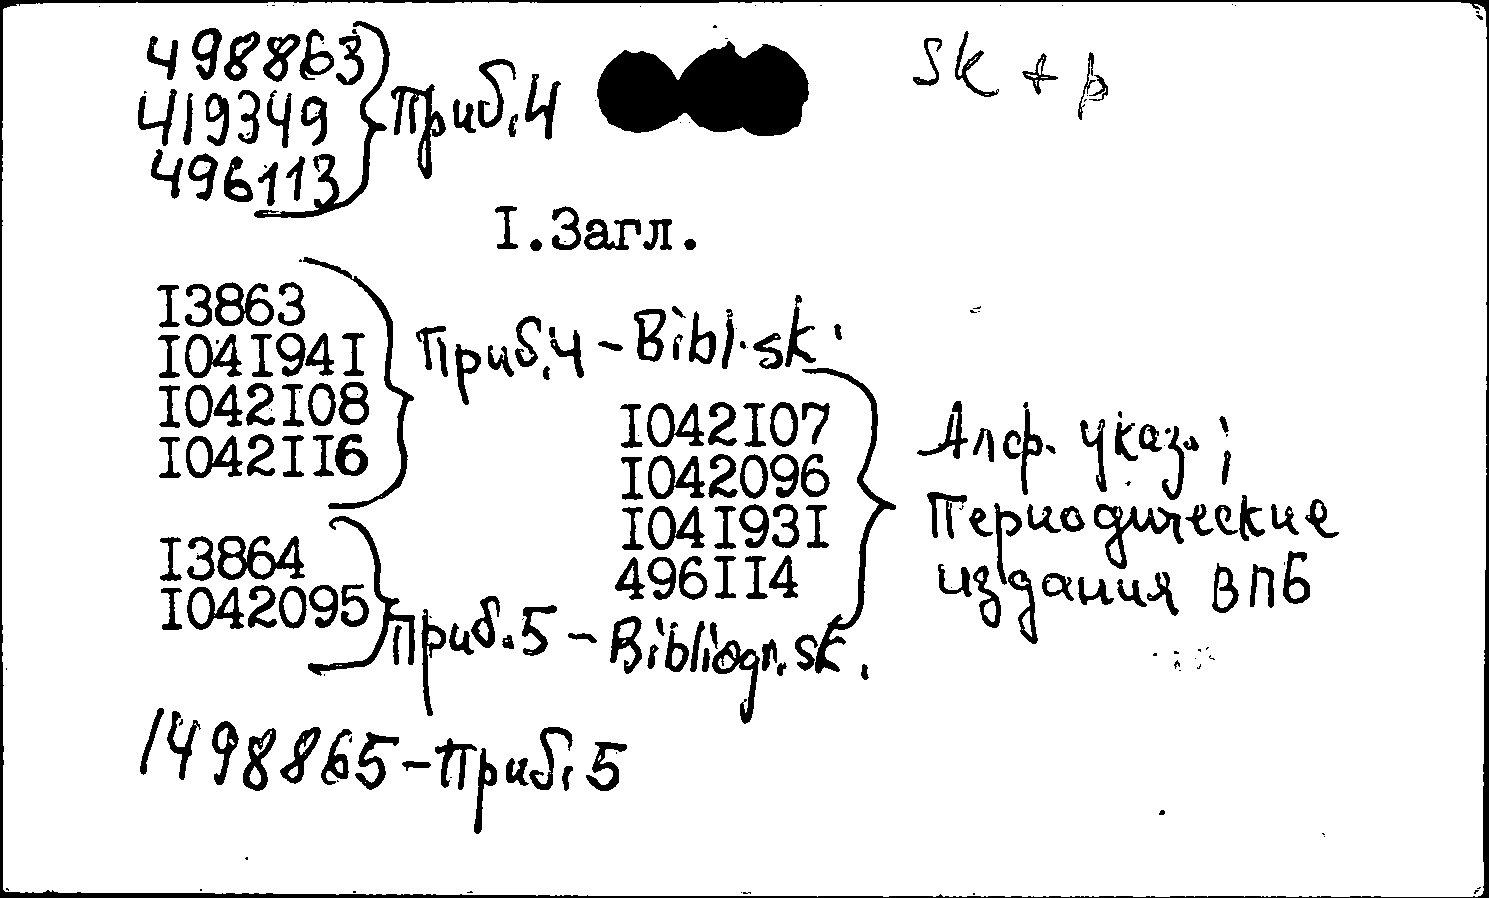 498863
419349
496113
Приб.4
sk + p
I.Загл.
I3863
I04I94I
I042I08
I042II6
Приб.4 - Bibl.sk.
I042I07
I042096
I04I93I
496II4
Алф. указ.;
Периодические
издания ВПБ
I3864
I042095
Приб.5 - Bibliogr.sk.
1498865 - Приб.5